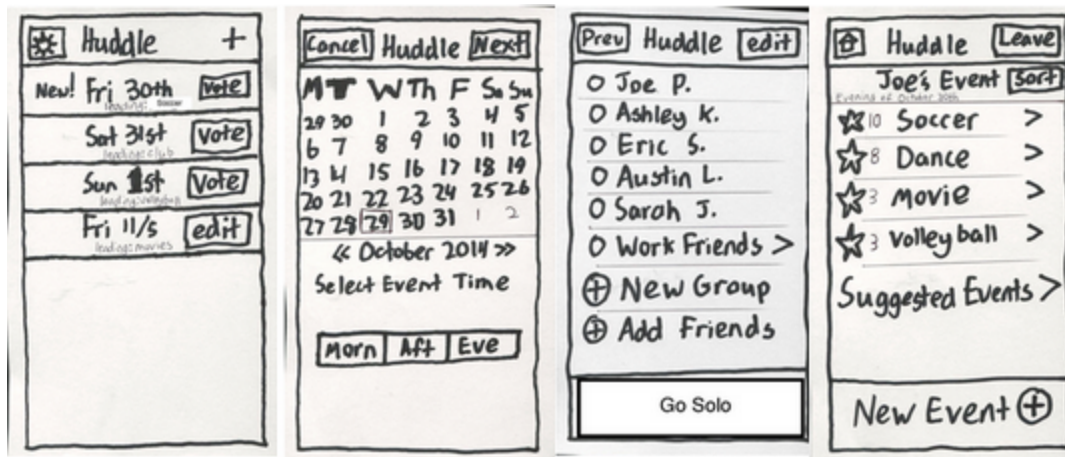 Huddle +
New! Fri 30th Vote
leading: Soccer
Sat 31st Vote
leading: club
Sun 1st Vote
leading: volleyball
Fri 11/5 edit
leading: movies
Cancel Huddle Next
M T W Th F Sa Su
29 30 1 2 3 4 5
6 7 8 9 10 11 12
13 14 15 16 17 18 19
20 21 22 23 24 25 26
27 28 29 30 31 1 2
<< October 2014 >>
Select Event Time
Morn Aft Eve
Prev Huddle edit
Joe P.
Ashley K.
Eric S.
Austin L.
Sarah J.
Work Friends >
+ New Group
+ Add Friends
Go Solo
Huddle Leave
Joe's Event Sort
Evening of October 30th
10 Soccer >
8 Dance >
3 Movie >
3 Volleyball >
Suggested Events >
New Event +